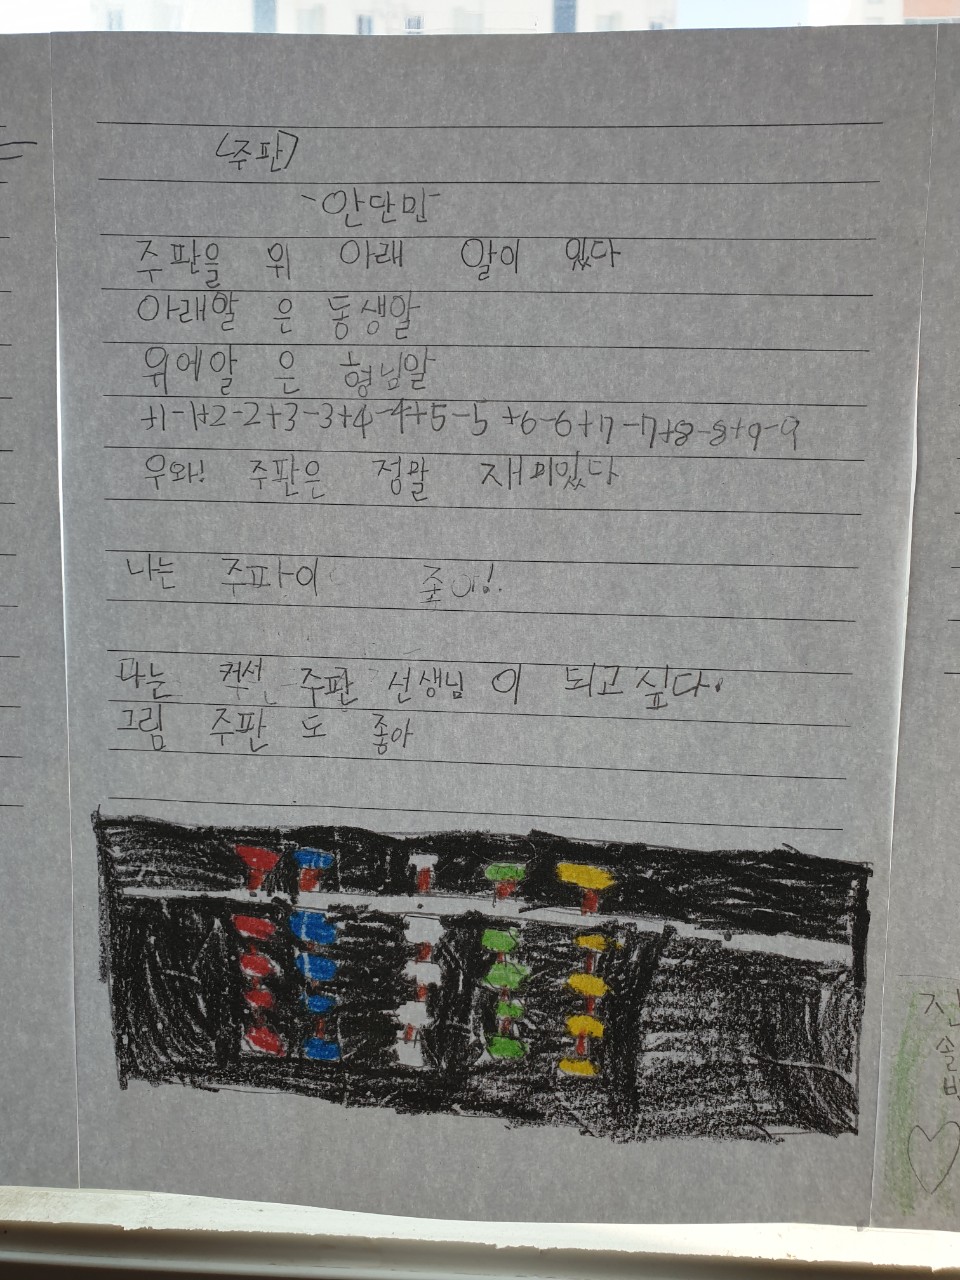 <주판>
-안단민-
주판을 위 아래 알이 있다
아래알 은 동생알
위에알 은 형님알
+1-1+2-2+3-3+4-4+5-5+6-6+7-7+8-8+9-9
우와! 주판은 정말 재미있다
나는 주파이 좋아!
나는 커서 주판 선생님 이 되고싶다.
그림 주판 도 좋아
솔